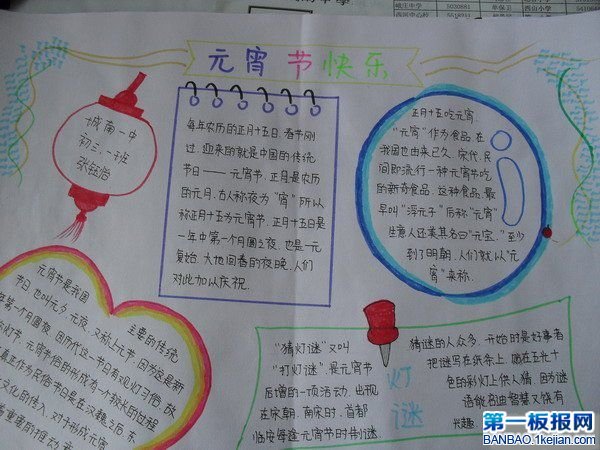 元宵节快乐
城南一中
初三.一班
每年农历的正月十五日.春节刚
过.迎来的就是中国的传统
节日——元宵节.正月是农历
的元月.古人称夜为"宵"所以
称正月十五为元宵节.正月十五日是
一年中第一个月圆之夜.也是一元
复始.大地回春的夜晚.人们
对此加以庆祝.
正月十五吃元宵
"元宵"作为食品.在
我国也由来已久.宋代.民
间即流行一种元宵节吃
的新奇食品.这种食品.最
早叫"浮元子"后称"元宵"
生意人还美其名曰"元宝."至少
到了明朝.人们就以"元
宵"来称.
元宵节是我国 主要的传统
节日.也叫元夕.元夜.又称上元节.因为这是新
年第一个月圆夜.因历代这一节日有观灯习俗.故
灯节.元宵节俗的形成有一个较长的过程
真正作为民俗节日是在汉魏之后.东
文化的传入.对于形成元宵
重要的推动
"猜灯谜"又叫
"打灯谜".是元宵节
后增的一项活动.出现
在宋朝.南宋时.首都
临安每逢元宵节时制谜.
灯
谜
猜谜的人众多.开始时是好事者
把谜写在纸条上.贴在五光十
色的彩灯上供人猜.因为谜
语能启迪智慧又饶有
兴趣.
第一板报网
BANBAO.1kejian.com